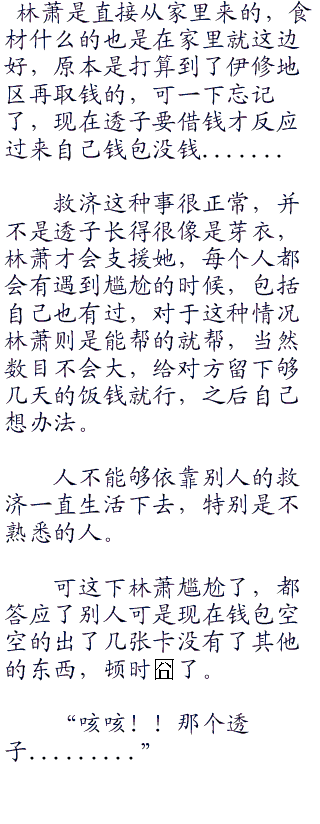 林萧是直接从家里来的，食
材什么的也是在家里就这边
好，原本是打算到了伊修地
区再取钱的，可一下忘记
了，现在透子要借钱才反应
过来自己钱包没钱.......
救济这种事很正常，并
不是透子长得很像是芽衣，
林萧才会支援她，每个人都
会有遇到尴尬的时候，包括
自己也有过，对于这种情况
林萧则是能帮的就帮，当然
数目不会大，给对方留下够
几天的饭钱就行，之后自己
想办法。
人不能够依靠别人的救
济一直生活下去，特别是不
熟悉的人。
可这下林萧尴尬了，都
答应了别人可是现在钱包空
空的出了几张卡没有了其他
的东西，顿时囧了。
“咳咳！！那个透
子.........”